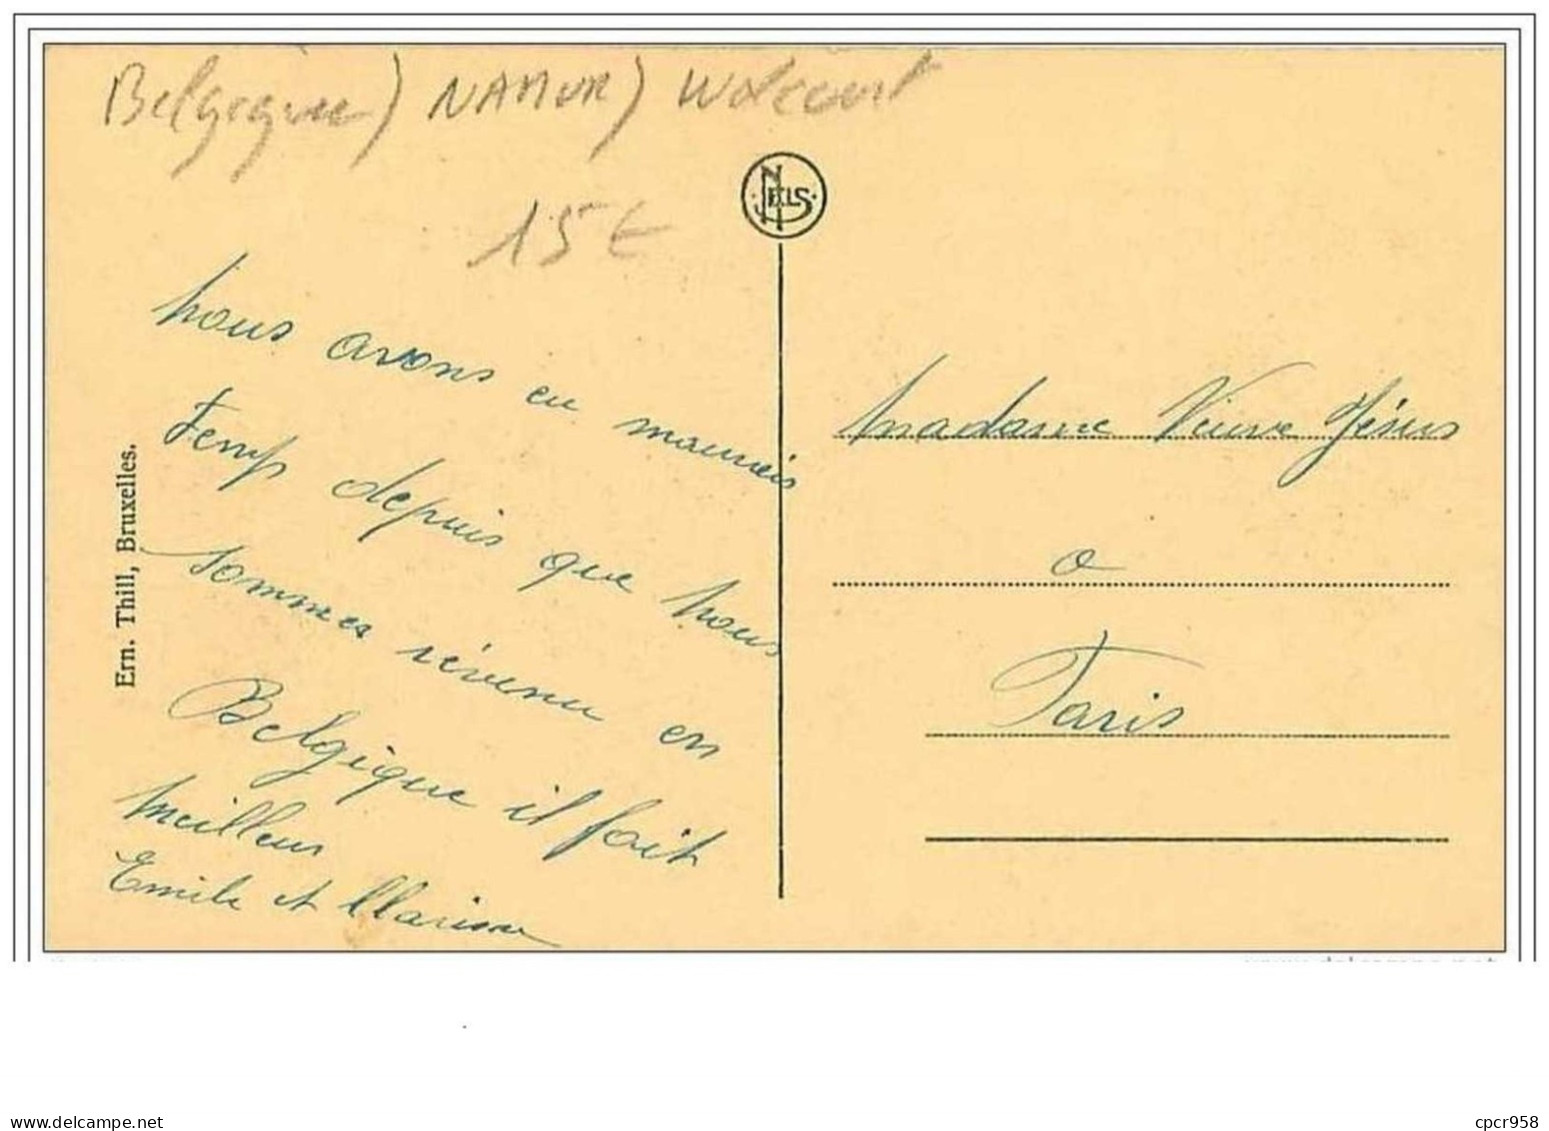 Belgique) NAMUR) Walcourt
15€
NELS
Ern. Thill, Bruxelles.
nous avons eu mauvais
Temps depuis que nous
sommes révenu en
Belgique il fait
meilleur
Emile et Clarisse
Madame Veuve Jésus
a
Paris
www.delcampe.net
delcampe.net
cpcr958